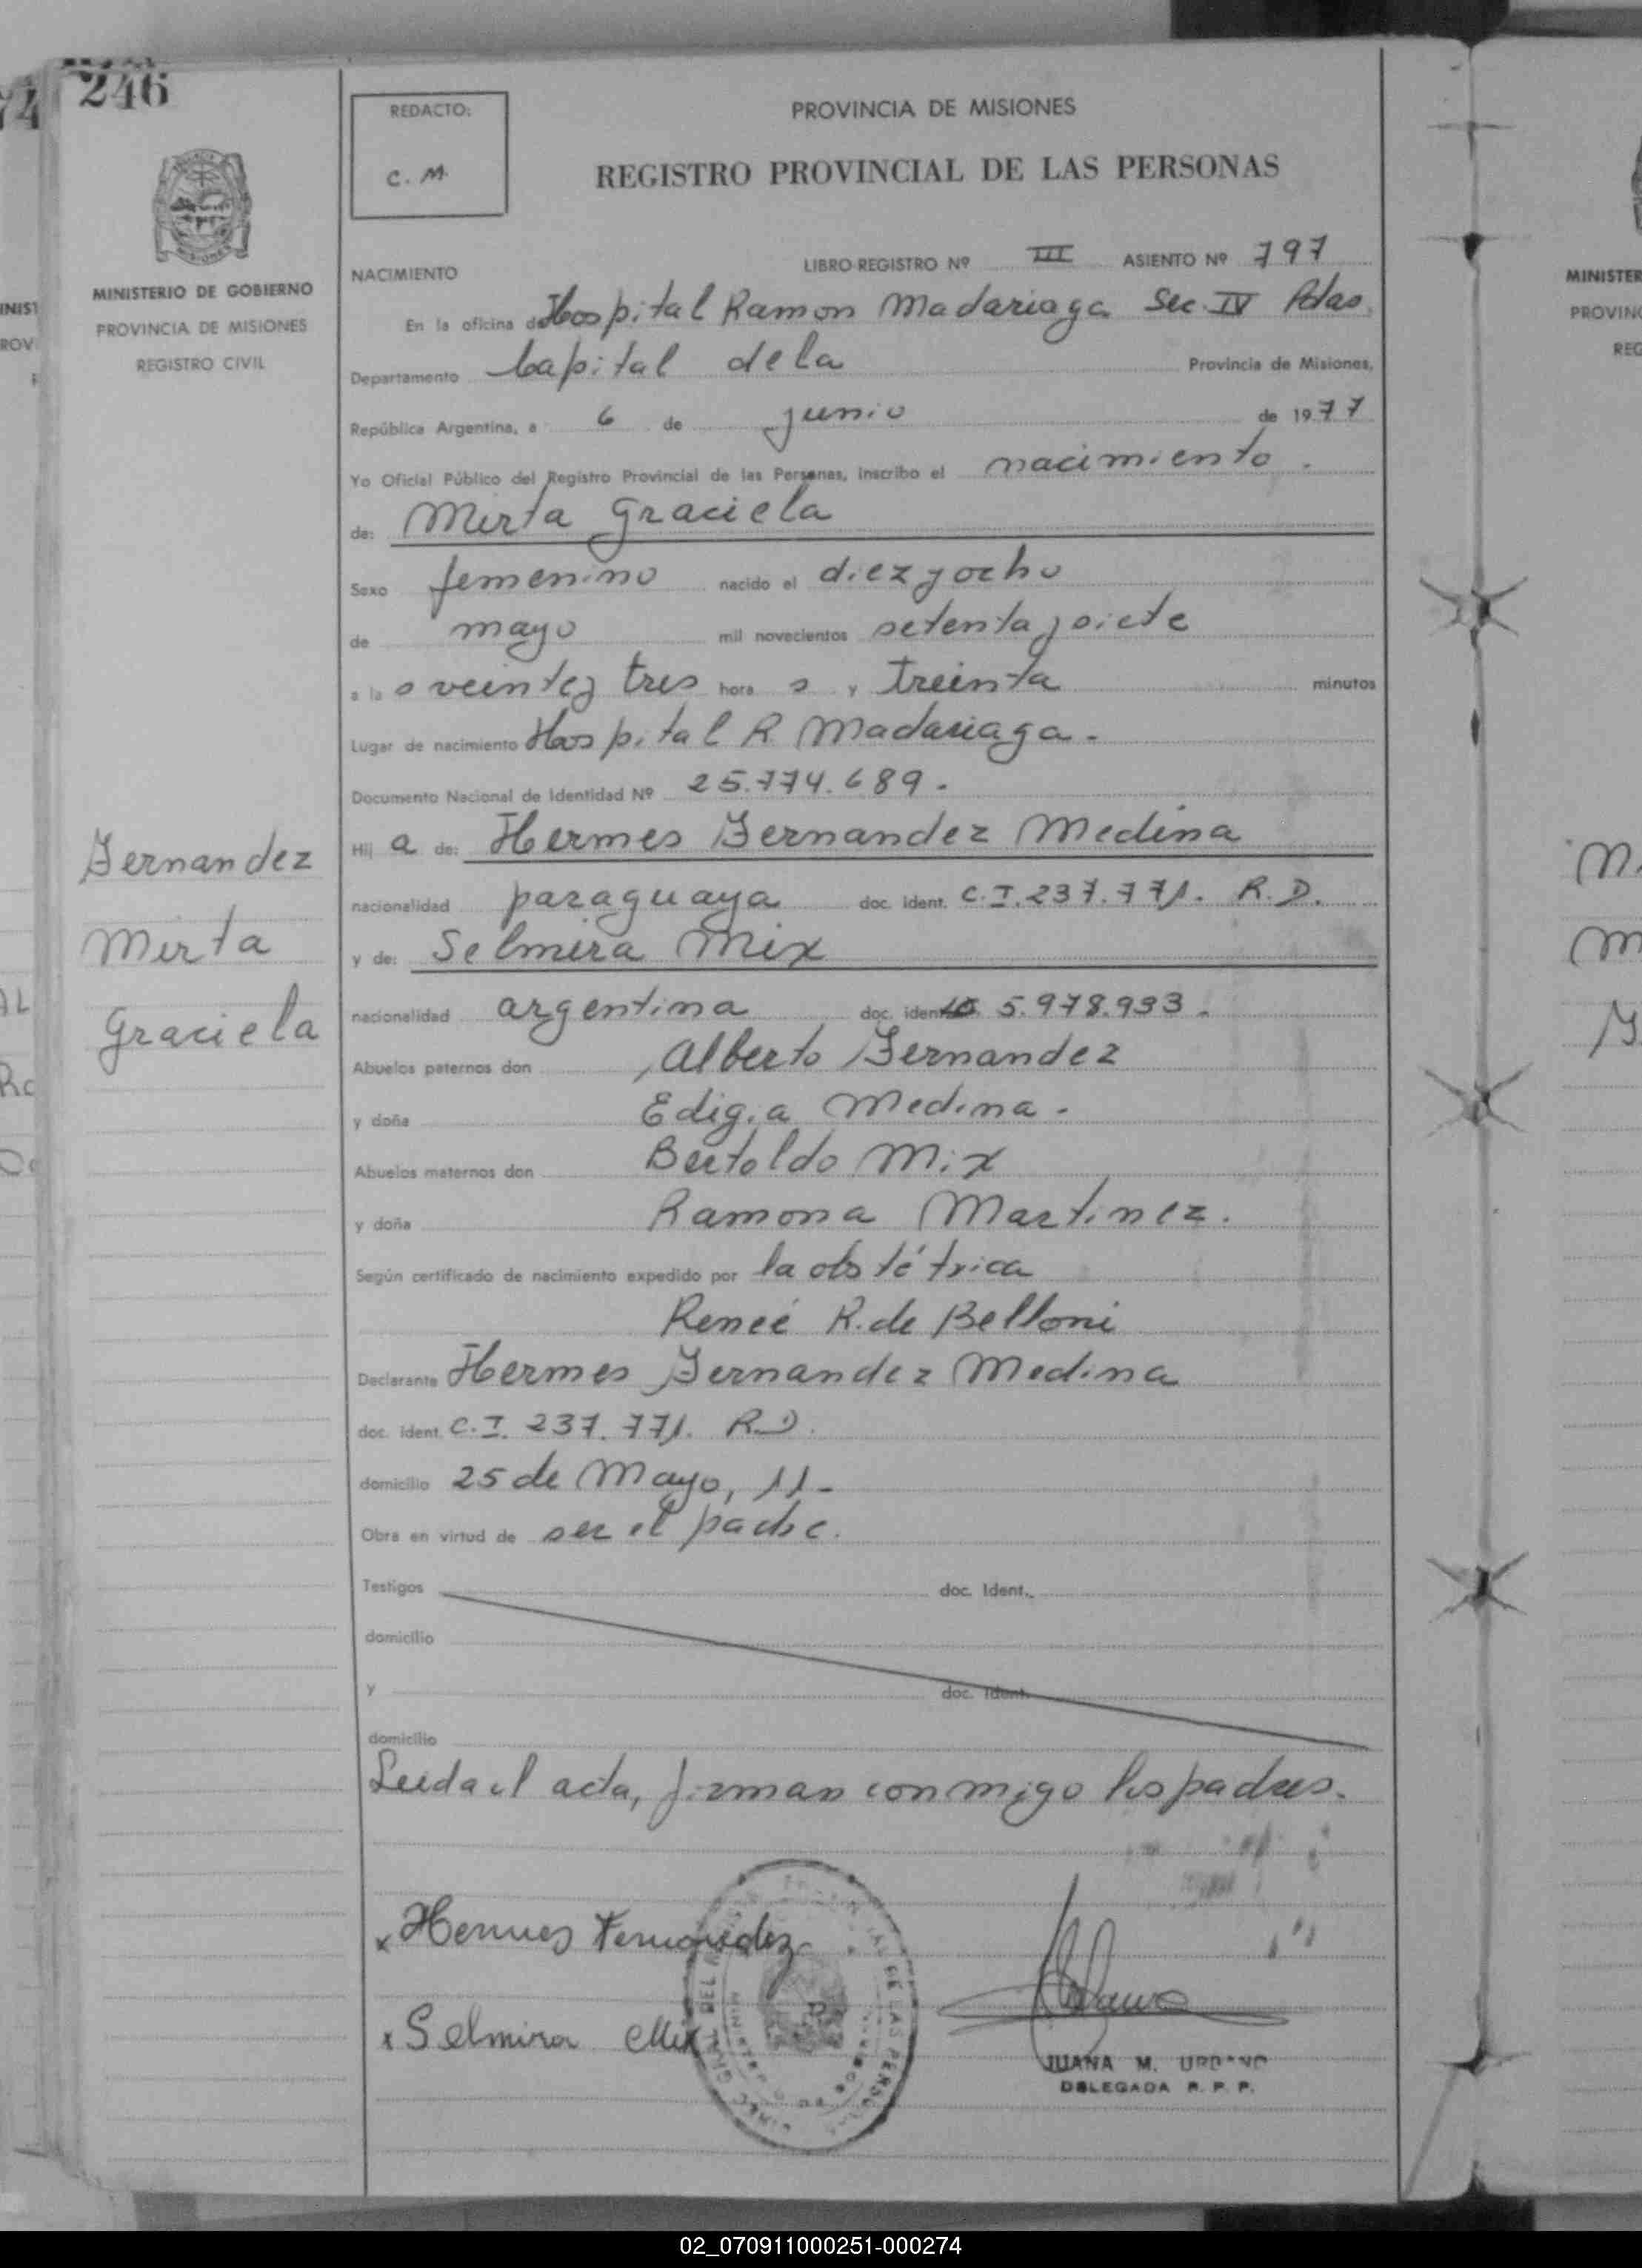 246
REDACTO:
C. M.
PROVINCIA DE MISIONES
REGISTRO PROVINCIAL DE LAS PERSONAS
MINISTERIO DE GOBIERNO
PROVINCIA DE MISIONES
REGISTRO CIVIL
NACIMIENTO
LIBRO-REGISTRO Nº III ASIENTO Nº 797
En la oficina de Hospital Ramon Madariaga Sec. IV Pdas.
Departamento Capital de la Provincia de Misiones,
República Argentina, a 6 de junio de 1977
Yo Oficial Público del Registro Provincial de las Personas, inscribo el nacimiento.
de: Mirta Graciela
Sexo femenino nacido el diez y ocho
de mayo mil novecientos setenta y siete
a la s veinte y tres hora s y treinta minutos
Lugar de nacimiento Hospital R. Madariaga.
Documento Nacional de Identidad Nº 25.774.689.
Hij a de: Hermes Fernandez Medina
nacionalidad paraguaya doc. ident. C.I. 237.771. R.D.
y de: Selmira Mix
nacionalidad argentina doc. ident. 5.978.933.
Abuelos paternos don Alberto Fernandez
y doña Edigia Medina.
Abuelos maternos don Bertoldo Mix
y doña Ramona Martinez.
Según certificado de nacimiento expedido por la obstétrica
Reneé R. de Belloni
Declarante Hermes Fernandez Medina
doc. ident. C.I. 237.771. R.D.
domicilio 25 de Mayo, 11-
Obra en virtud de ser el padre.
Testigos doc. Ident.
domicilio
y doc. Ident.
domicilio
Leida el acta, firman conmigo los padres.
Fernandez
Mirta
Graciela
x Hermes Fernandez
x Selmira Mix
JUANA M. URBANO
DELEGADA R. P. P.
02_070911000251-000274